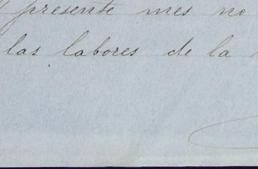 presente mes no
las labores de la